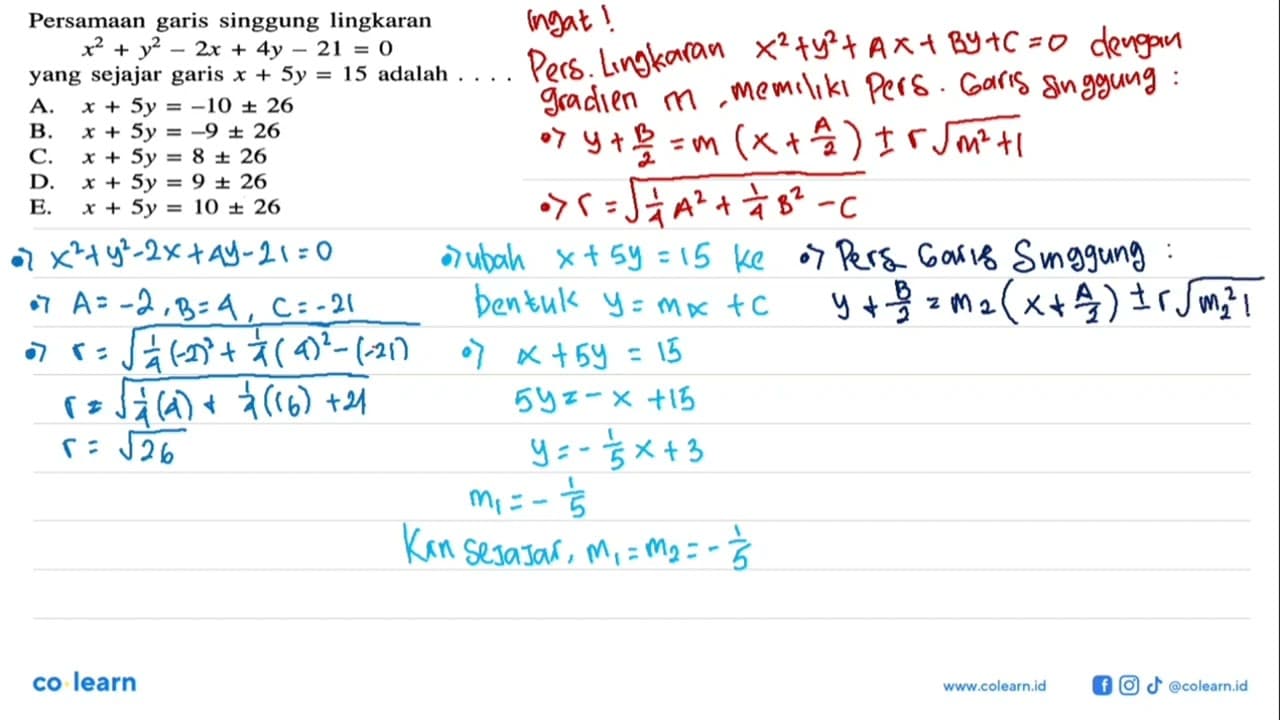 Persamaan garis singgung lingkaran
x² + y² − 2x + 4y − 21 = 0
yang sejajar garis x + 5y = 15 adalah . . . .
A. x + 5y = −10 ± 26
B. x + 5y = −9 ± 26
C. x + 5y = 8 ± 26
D. x + 5y = 9 ± 26
E. x + 5y = 10 ± 26
Ingat !
Pers. Lingkaran x² + y² + Ax + By + C = 0 dengan
gradien m, memiliki Pers. Garis Singgung :
•> y + B/2 = m (x + A/2) ± r √(m² + 1)
•> r = √(1/4 A² + 1/4 B² − C)
•> x² + y² − 2x + 4y − 21 = 0
•> A = −2, B = 4, C = −21
•> r = √(1/4 (−2)² + 1/4 (4)² − (−21))
r = √(1/4 (4) + 1/4 (16) + 21)
r = √26
•> ubah x + 5y = 15 ke
bentuk y = mx + c
•> x + 5y = 15
5y = − x + 15
y = − 1/5 x + 3
m₁ = − 1/5
Krn sejajar, m₁ = m₂ = − 1/5
•> Pers Garis Singgung :
y + B/2 = m₂ (x + A/2) ± r √(m₂² 1)
co learn
www.colearn.id
@colearn.id